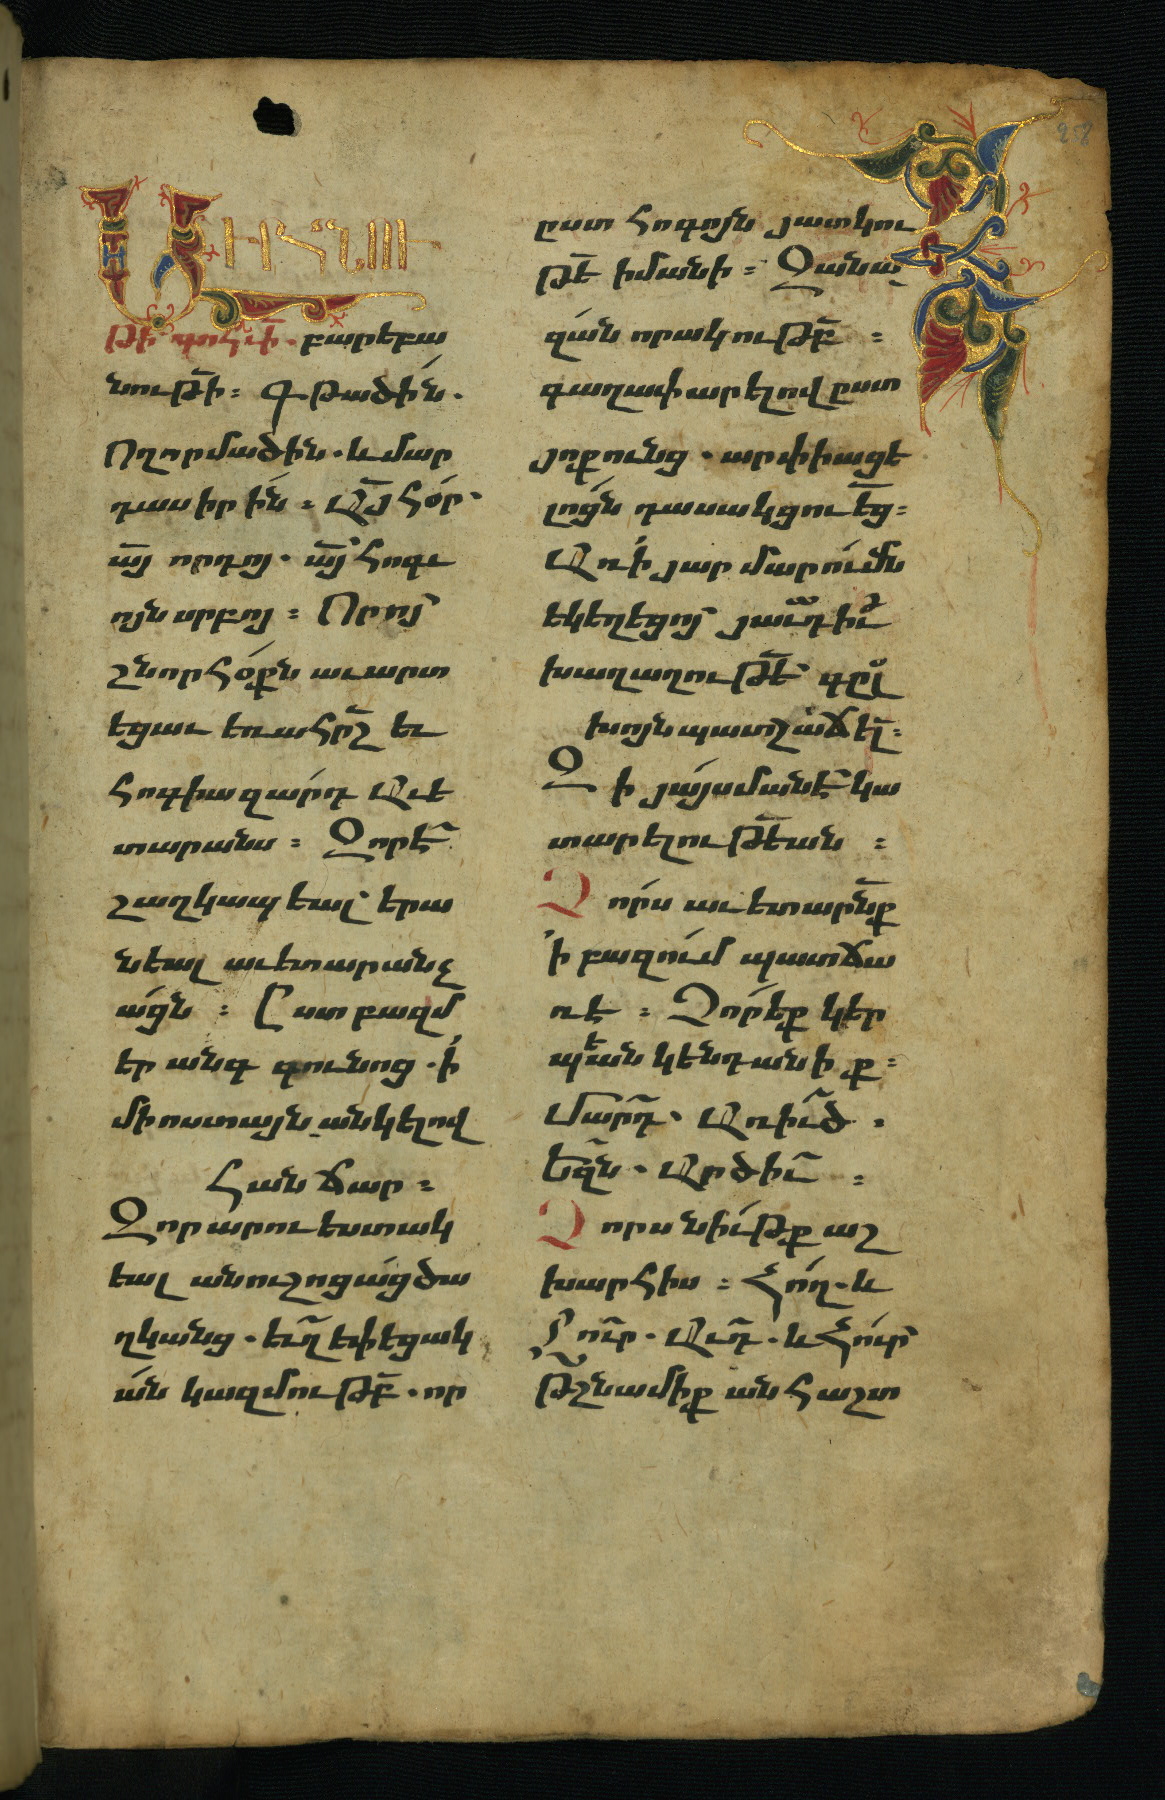 ԱՒՀՆՈՒ
թի գոհւի. բարեբա
նութի։ Գթածին.
Ողորմածին. և մար
դասիրին։ Այ հօր.
այ որդոյ. այ հոգւ
ոյն սրբոյ։ Որոյ
շնորհօքն աւարտ
եցաւ եռահրշ եւ
հոգիազարդ Աւե
տարանս։ Զորէ
շաղկապեալ երա
նեալ աւետարանչ
ացն։ Ըստ բազմ
երանգ գունոց. ի
միոստայն անկելով
հանճար։
Զոր արուեստակ
եալ անուշոցացծա
ղկանց. եւղեփեցակ
ան կազմութբ. որ
ըստ հոգոյն յատկու
թե իմանի։ Զանա
զան որակութբ։
գաղափարելով ըստ
յոքունց. արփիացե
լոցն դասակցուեց։
Առի յարմարումն
եկեղեցոյ յաւդիւ
խաղաղութե գըլ
խոյն պատշաճել։
Զի յայսմանէ կա
տարելութեան։
Չորս աւետարնք
ի բազում պատճա
ռէ։ Չորեքկեր
պեան կենդանիք։
Մարդ. Առիւծ.
Եզն. Արծիւ։
Չորս նիւթք աշ
խարհիս։ Հող. և
Ջուր. Աւդ. և Հուր
Թշնամիք անհաշտ